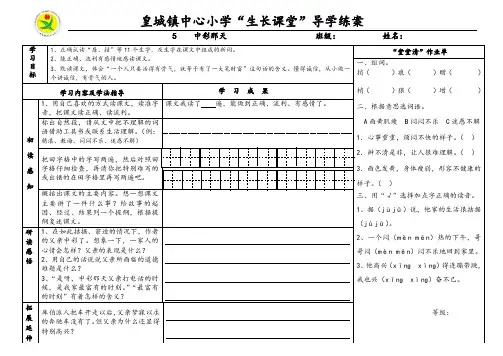 皇城镇中心小学“生长课堂”导学练案
5 中彩那天 班级： 姓名：
学习目标
1、正确认读“属、拮”等11个生字，及生字在课文中组成的新词。
2、能正确、流利有感情地感读课文。
3、熟读课文，体会“一个人只要活得有骨气，就等于有了一大笔财富”这句话的含义。懂得诚信，从小做一个讲诚信，有骨气的人。
学习内容及学法指导
学 习 成 果
初读感知
1、用自己喜欢的方式读课文，读准字音，把课文读正确，读流利。
课文我读了 遍，能做到正确、流利、有感情了。
标出自然段，请从文中把不理解的词语借助工具书或联系生活理解。（例：
把田字格中的字写两遍，然后对照田字格仔细检查，再请你把特别难写的或出错的在田字格里再写两遍吧。
概括出课文的主要内容。想一想课文主要讲了一件什么事？给故事的起因、经过、结果列一个提纲，根据提纲复述课文。
研读感悟
1、在如此拮据、窘迫的情况下，作者的父亲中彩了。想象一下，一家人的心情会怎样？父亲的表现是什么？
2、用自己的话说说父亲所面临的道德难题是什么？
3、“是呀，中彩那天父亲打电话的时候，是我家最富有的时刻。”“最富有的时刻”有着怎样的含义？
拓展延伸
库伯派人把车开走以后，父亲梦寐以求的奔驰车没有了。但父亲为什么还显得特别高兴？
“堂堂清”作业单
一、组词。
拮（ ）联（ ）赠（ ）
桔（ ）狠（ ）增（ ）
二、根据意思选词语。
A面黄肌瘦 B闷闷不乐 C迷惑不解
1、心事重重，烦闷不快的样子。（ ）
2、辨不清是非，让人很难理解。（ ）
3、面色发黄，身体瘦弱，形容不健康的样子。（ ）
三、用“√”选择加点字正确的读音。
1、据（jù jū）说，他家的生活很拮据（jù jū）。
2、一个闷（mèn mēn）热的下午，哥哥闷（mèn mēn）闷不乐地回到家里。
3、他高兴（xīng xìng）得连蹦带跳，我也兴（xīng xìng）奋不已。
等级：